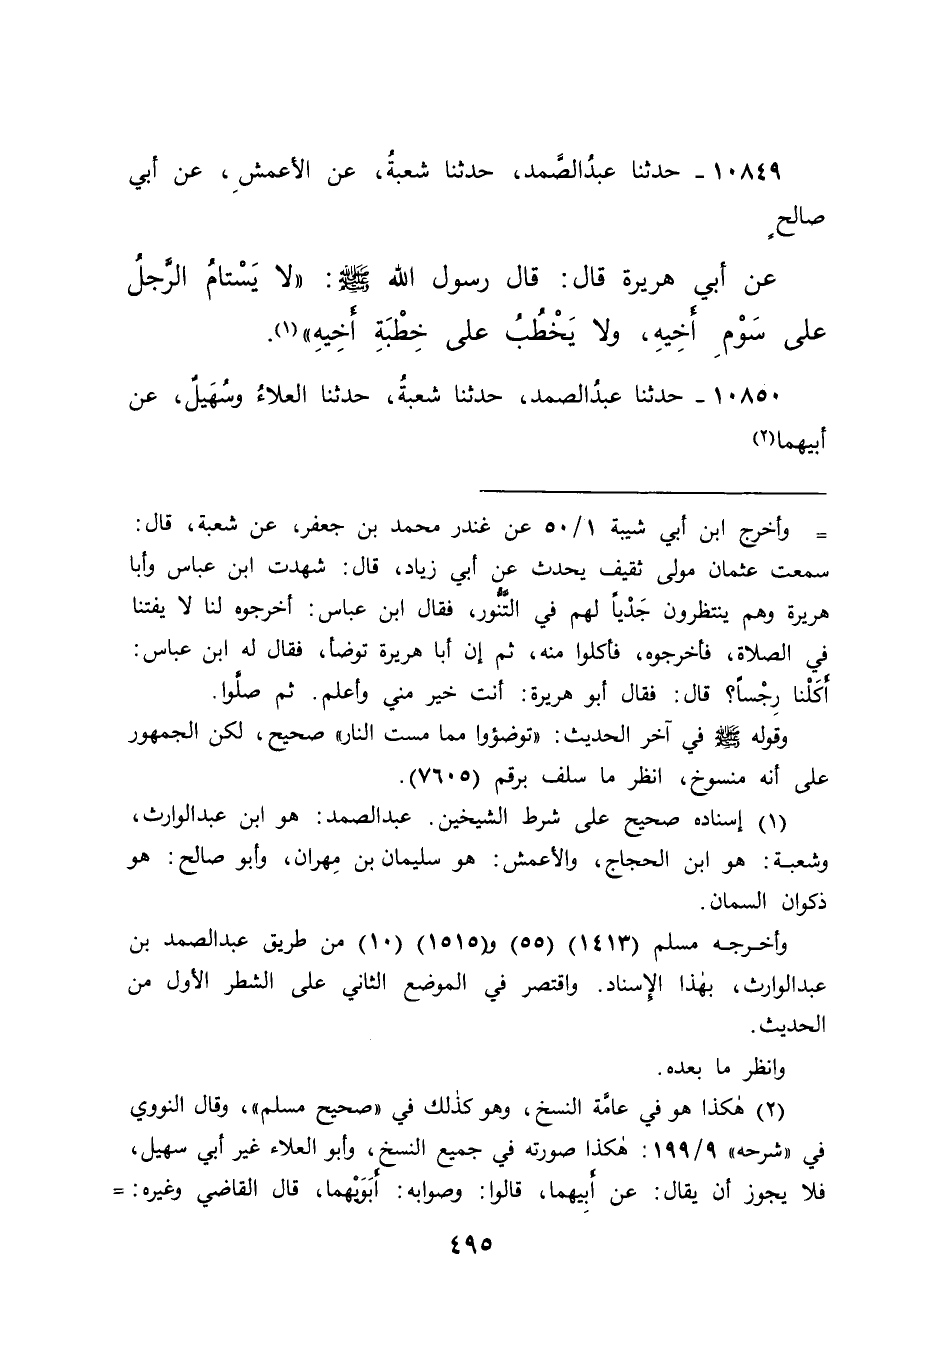 ١٠٨٤٩ - حدثنا عبدُالصَّمد، حدثنا شعبةُ، عن الأعمشِ، عن أبي
صالحٍ
عن أبي هريرة قال: قال رسول الله ﷺ: «لا يَسْتامُ الرَّجلُ
على سَوْمِ أَخِيهِ، ولا يَخْطُبُ على خِطْبَةِ أَخِيهِ»(١).
١٠٨٥٠ - حدثنا عبدُالصمد، حدثنا شعبةُ، حدثنا العلاءُ وسُهَيلٌ، عن
أبيهما(٢)
= وأخرج ابن أبي شيبة ٥٠/١ عن غندر محمد بن جعفر، عن شعبة، قال:
سمعت عثمان مولى ثقيف يحدث عن أبي زياد، قال: شهدت ابن عباس وأبا
هريرة وهم ينتظرون جَدْياً لهم في التَّنُّور، فقال ابن عباس: أخرجوه لنا لا يفتنا
في الصلاة، فأخرجوه، فأكلوا منه، ثم إن أبا هريرة توضأ، فقال له ابن عباس:
أَكَلْنا رِجْساً؟ قال: فقال أبو هريرة: أنت خير مني وأعلم. ثم صلَّوا.
وقوله ﷺ في آخر الحديث: «توضؤوا مما مست النار» صحيح، لكن الجمهور
على أنه منسوخ، انظر ما سلف برقم (٧٦٠٥).
(١) إسناده صحيح على شرط الشيخين. عبدالصمد: هو ابن عبدالوارث،
وشعبة: هو ابن الحجاج، والأعمش: هو سليمان بن مِهران، وأبو صالح: هو
ذكوان السمان.
وأخرجه مسلم (١٤١٣) (٥٥) و(١٥١٥) (١٠) من طريق عبدالصمد بن
عبدالوارث، بهٰذا الإِسناد. واقتصر في الموضع الثاني على الشطر الأول من
الحديث.
وانظر ما بعده.
(٢) هٰكذا هو في عامَّة النسخ، وهو كذٰلك في «صحيح مسلم»، وقال النووي
في «شرحه» ١٩٩/٩: هٰكذا صورته في جميع النسخ، وأبو العلاء غير أبي سهيل،
فلا يجوز أن يقال: عن أَبِيهما، قالوا: وصوابه: أَبَوَيْهما، قال القاضي وغيره: =
٤٩٥